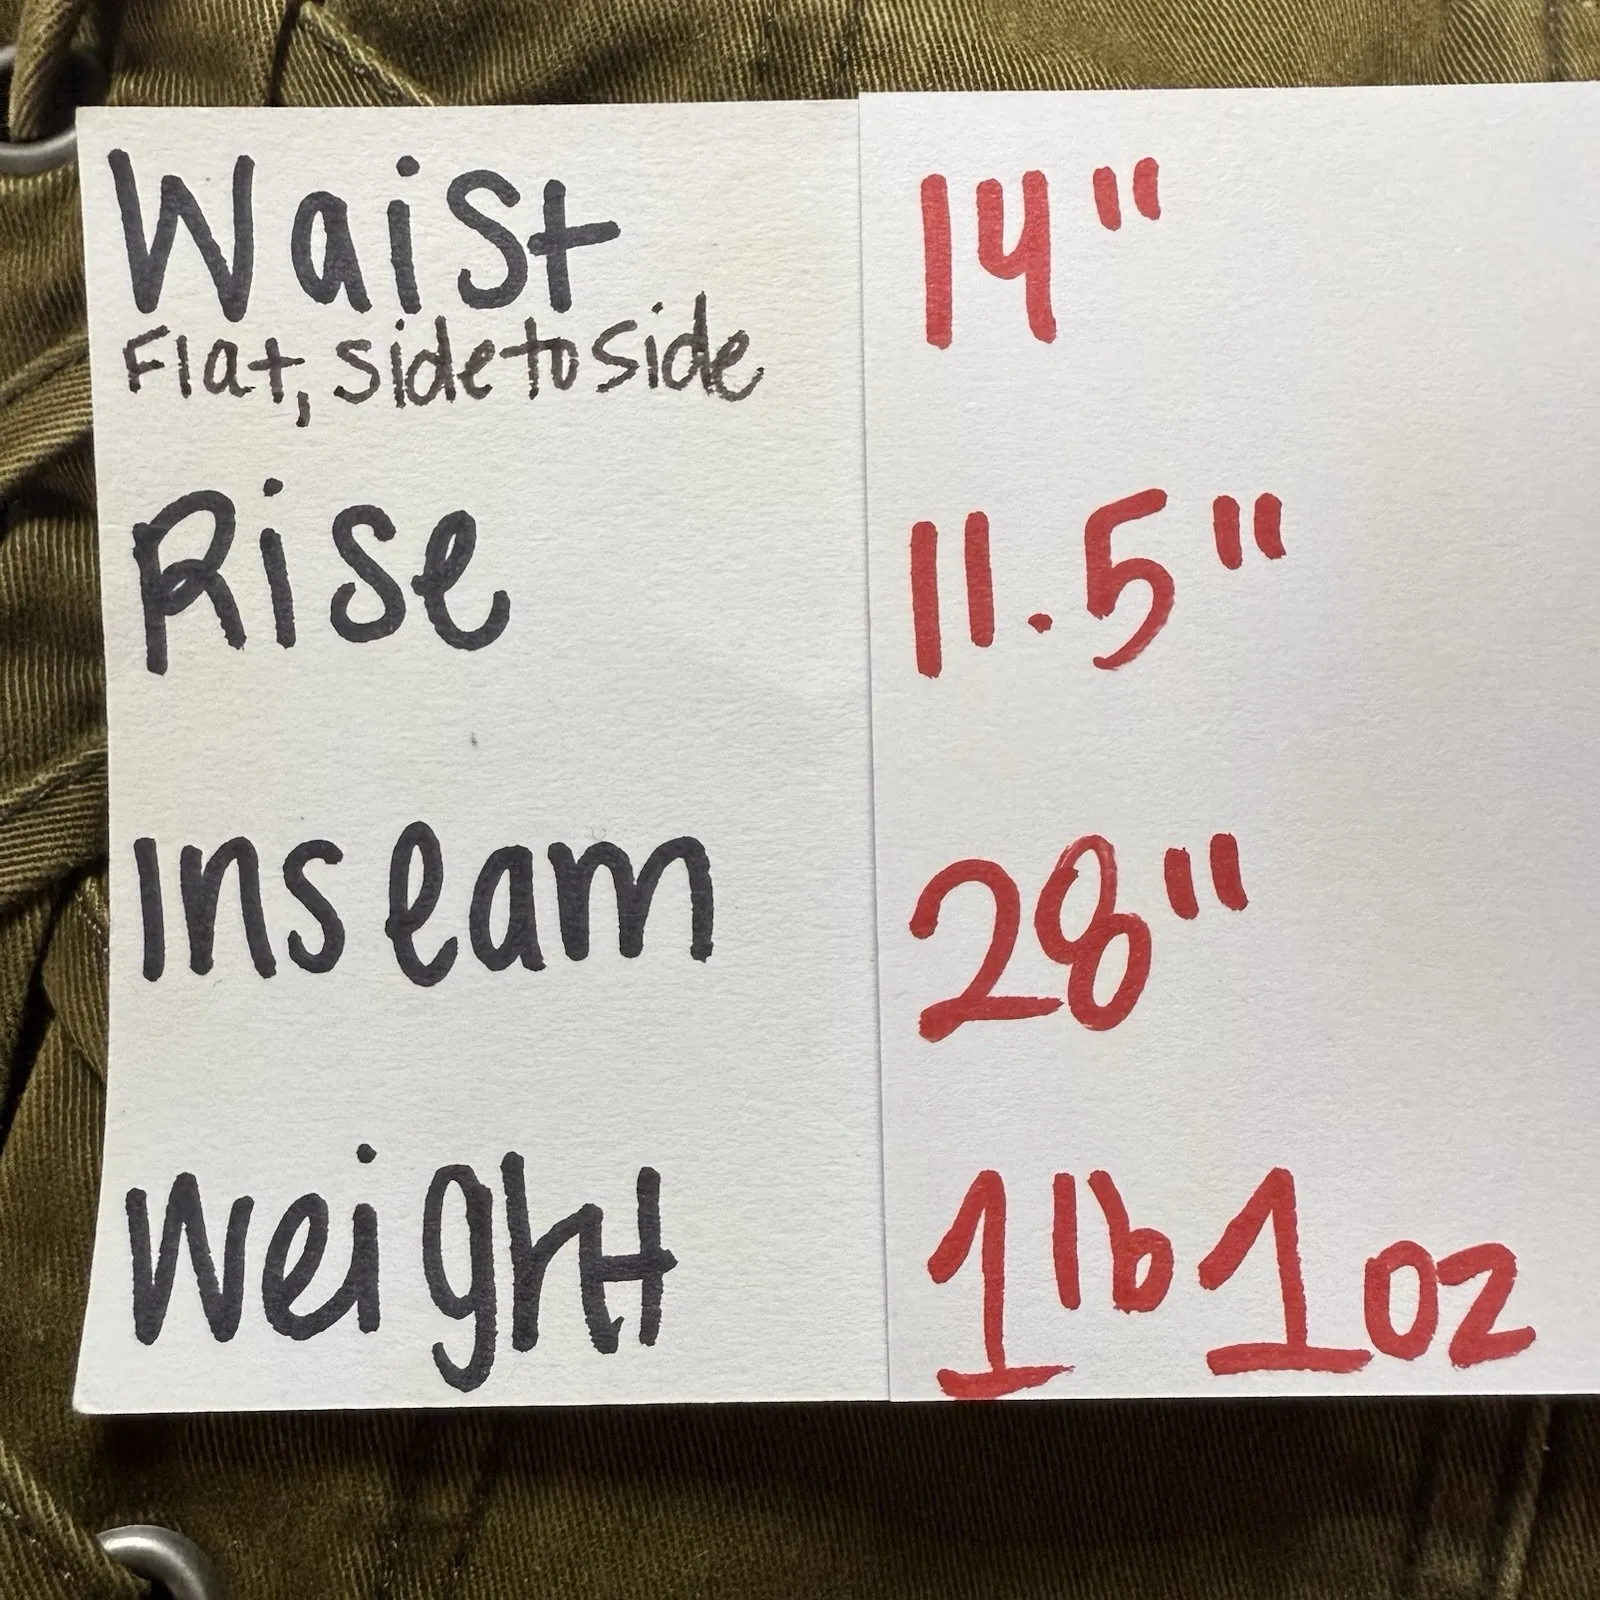 Waist 14"
Flat, side to side
Rise 11.5"
Inseam 28"
Weight 1lb 1oz